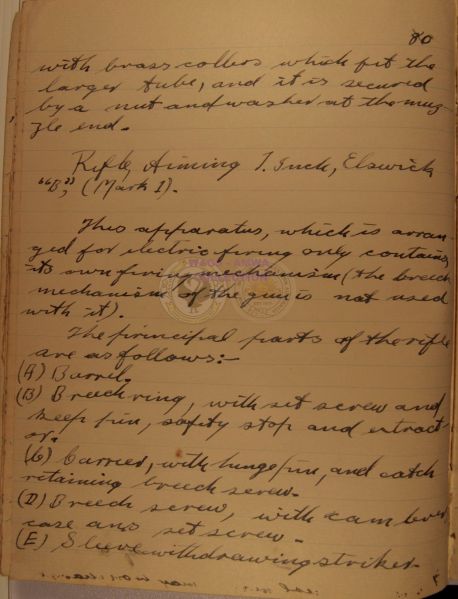 80
with brass collers which fit the
larger tube, and it is secured
by a nut and washer at the muz
zle end.
Rifle, Aiming 1. Inch, Elswick
"B," (Mark I).
This apparatus, which is arran
ged for electric firing only contains
its own firing mechanism (the breech
mechanism of the gun is not used
with it).
The principal parts of the rifle
are as follows:-
(A) Barrel.
(B) Breech ring, with set screw and
keep pin, safety stop and extract
or.
(C) Carrier, with hinge pin, and catch
retaining breech screw.
(D) Breech screw, with cam lever
case and set screw.
(E) Sleeve withdrawing striker.